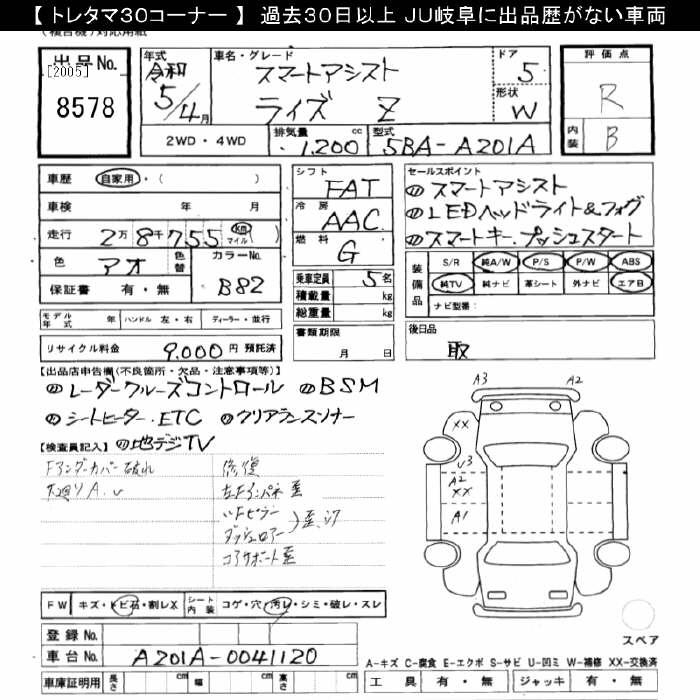 【トレタマ30コーナー】 過去30日以上 JU岐阜に出品歴がない車両
出品No.
[2005]
8578
年式 車名・グレード ドア 評価点
令和 5/4月
スマートアシスト
ライズ Z
5
形状 W
R
内装 B
2WD・4WD 排気量 1,200 cc 型式 5BA-A201A
車歴 自家用・( )
車検 年 月
走行 2万8千755 km マイル
色 アオ 色替 カラーNo. B82
保証書 有・無
シフト FAT
冷房 AAC
燃料 G
乗車定員 5名
積載量 kg
総重量 kg
書類期限 月 日
セールスポイント
スマートアシスト
LEDヘッドライト&フォグ
スマートキー.プッシュスタート
装備品 S/R 純A/W P/S P/W ABS
純TV 純ナビ 革シート 外ナビ エアB
ナビ型番:
モデル年式 年 ハンドル 左・右 ディーラー・並行
リサイクル料金 9,000円 預託済
後日品
取
【出品店申告欄(不良箇所・欠品・注意事項等)】
レーダークルーズコントロール BSM
シートヒーター.ETC クリアランスソナー
【検査員記入】 地デジTV
Fアンダーカバー破れ
下廻りA.U
修復
左Fインパネ歪
〃Fピラー
ダッシュロアー 歪.凹
コアサポート歪
A3 A2
XX
U3
A2
XX
A1
スペア
FW キズ・トビ石・割レX シート内装 コゲ・穴・汚レ・シミ・破レ・スレ
登録No.
車台No. A201A-0041120
車庫証明用 長さ cm 幅 cm 高さ cm
A-キズ C-腐食 E-エクボ S-サビ U-凹ミ W-補修 XX-交換済
工具 有・無 ジャッキ 有・無